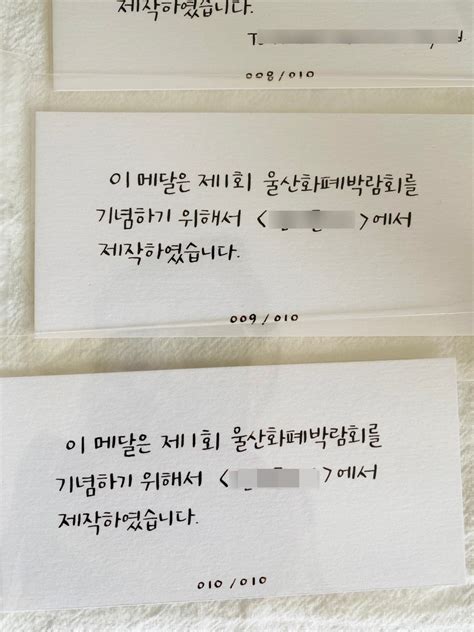 제작하였습니다.
008/010
이 메달은 제1회 울산화폐박람회를
기념하기 위해서 < >에서
제작하였습니다.
009/010
이 메달은 제1회 울산화폐박람회를
기념하기 위해서 < >에서
제작하였습니다.
010/010